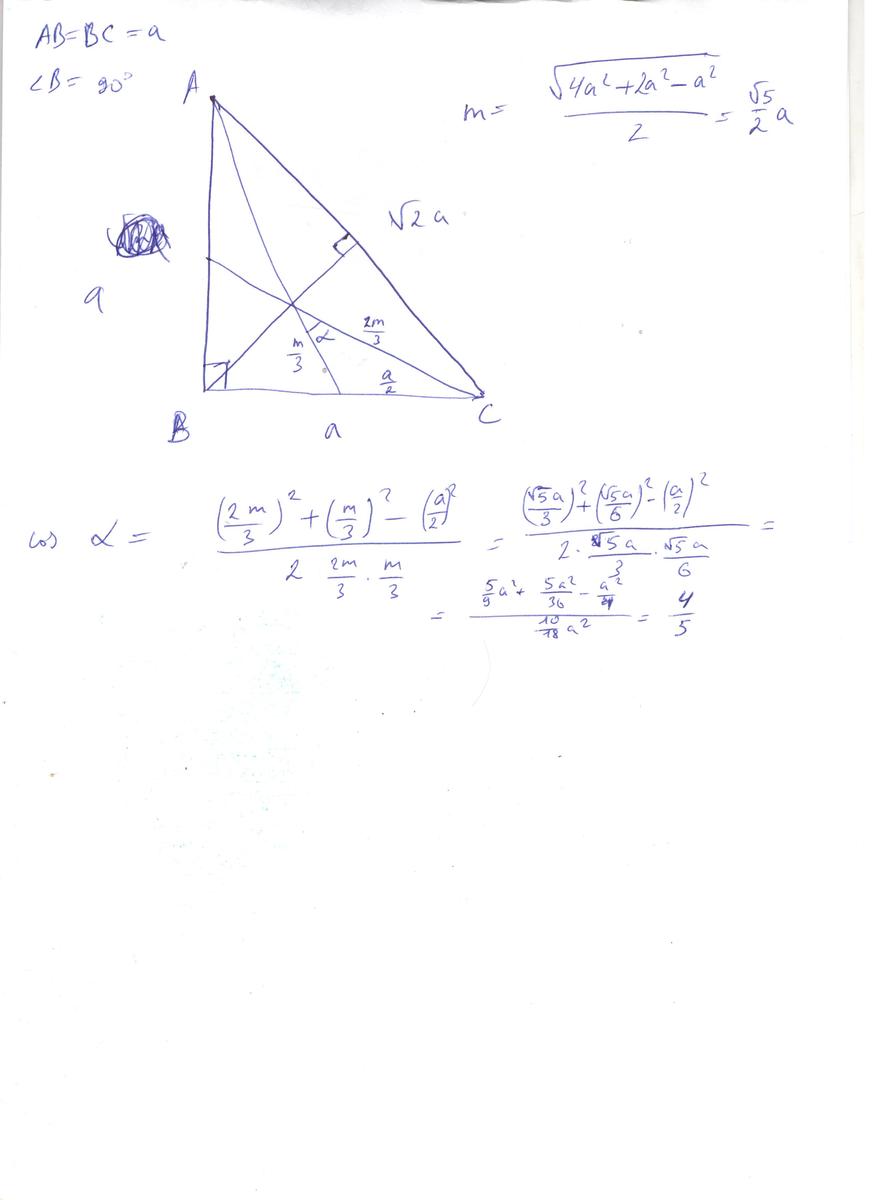 AB=BC=a
∠B= 90°
A
m= √(4a²+2a²−a²)/2 = √5/2 a
√2 a
a
2m/3
m/3
α
a/2
B
a
C
cos α = ((2m/3)²+(m/3)²−(a/2)²)/(2 2m/3 · m/3) = ((√5a/3)²+(√5a/6)²−(a/2)²)/(2·√5a/3·√5a/6) =
= (5/9a²+5a²/36−a²/4)/(10/18a²) = 4/5